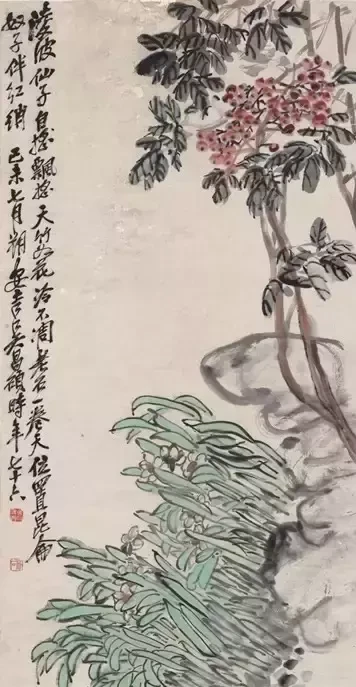 凌波仙子自搖飄搖天竹如花冷不凋老石一拳天位置昆侖
奴子伴紅綃 己未七月朔安吉吳昌碩時年七十六